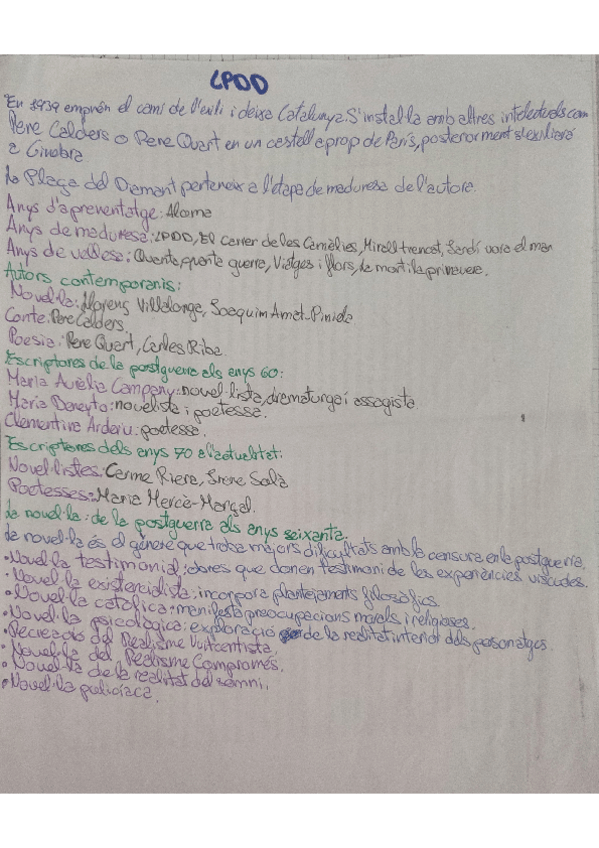 LPDD
En 1939 emprén el camí de l'exili i deixa Catalunya. S'instal·la amb altres intelectuals com
Pere Calders o Pere Quart en un castell a prop de París, posteriorment s'exiliarà
a Ginebra
La Plaça del Diamant perteneix a l'etapa de maduresa de l'autora.
Anys d'aprenentatge: Aloma
Anys de maduresa: LPDD, El carrer de les Camèlies, Mirall trencat, Jardí vora el mar
Anys de vellesa: Quanta, quanta guerra, Viatges i flors, La mort i la primavera.
Autors contemporanis:
Novel·la: Llorenç Villalonga, Joaquim Amat-Piniella
Conte: Pere Calders
Poesia: Pere Quart, Carles Riba
Escriptores de la postguerra als anys 60:
Maria Aurèlia Campany: novel·lista, dramaturga i assagista
Maria Beneyto: novelista i poetessa.
Clementina Arderiu: poetessa.
Escriptores dels anys 70 a l'actualitat:
Novel·listes: Carme Riera, Irene Solà
Poetesses: Maria Mercè-Marçal.
La novel·la: de la postguerra als anys seixanta.
La novel·la és el gènere que troba majors dificultats amb la censura en la postguerra.
•Novel·la testimonial: obres que donen testimoni de les experiències viscudes.
•Novel·la existencialista: incorpora plantejaments filosòfics
•Novel·la catòlica: manifesta preocupacions morals i religioses.
•Novel·la psicològica: exploració de la realitat interior dels personatges.
•Recreació del Realisme Vuitcentista.
•Novel·la del Realisme Compromés.
•Novel·la de la realitat del somni.
•Novel·la policíaca.